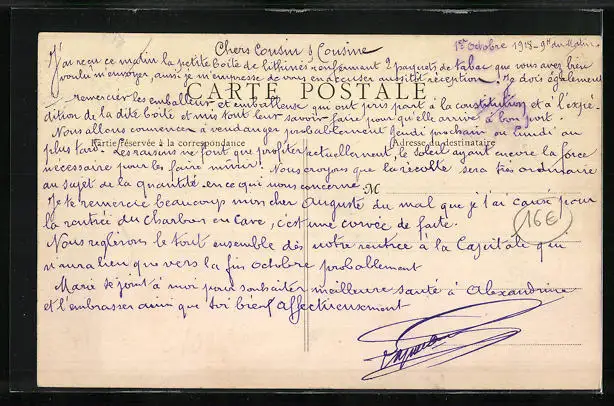 Chers Cousin & Cousine
1er Octobre 1918 - 9H du Matin
J'ai reçu ce matin la petite boîte de lithinés renfermant 2 paquets de tabac que vous avez bien
voulu m'envoyer, aussi je m'empresse de vous en accuser aussitôt réception. Je dois également
CARTE POSTALE
remercier les emballeur et emballeuse qui ont pris part à la constitution et à l'expé-
dition de la dite boîte et mis tout leur savoir-faire pour qu'elle arrive à bon port.
Nous allons commencer à vendanger probablement Jeudi prochain ou Lundi au
plus tard. Les raisins ne font que profiter actuellement, le soleil ayant encore la force
Partie réservée à la correspondance
Adresse du destinataire
nécessaire pour les faire mûrir. Nous croyons que la récolte sera très ordinaire
au sujet de la quantité en ce qui nous concerne.
M
Je te remercie beaucoup mon cher Auguste du mal que je t'ai causé pour
la rentrée du charbon en cave, c'est une corvée de faite.
16€
Nous reglerons le tout ensemble dès notre rentrée à la Capitale qui
n'aura lieu que vers la fin Octobre probablement
Marie se joint à moi pour souhaiter meilleure santé à Alexandrine
et l'embrasser ainsi que toi bien affectueusement